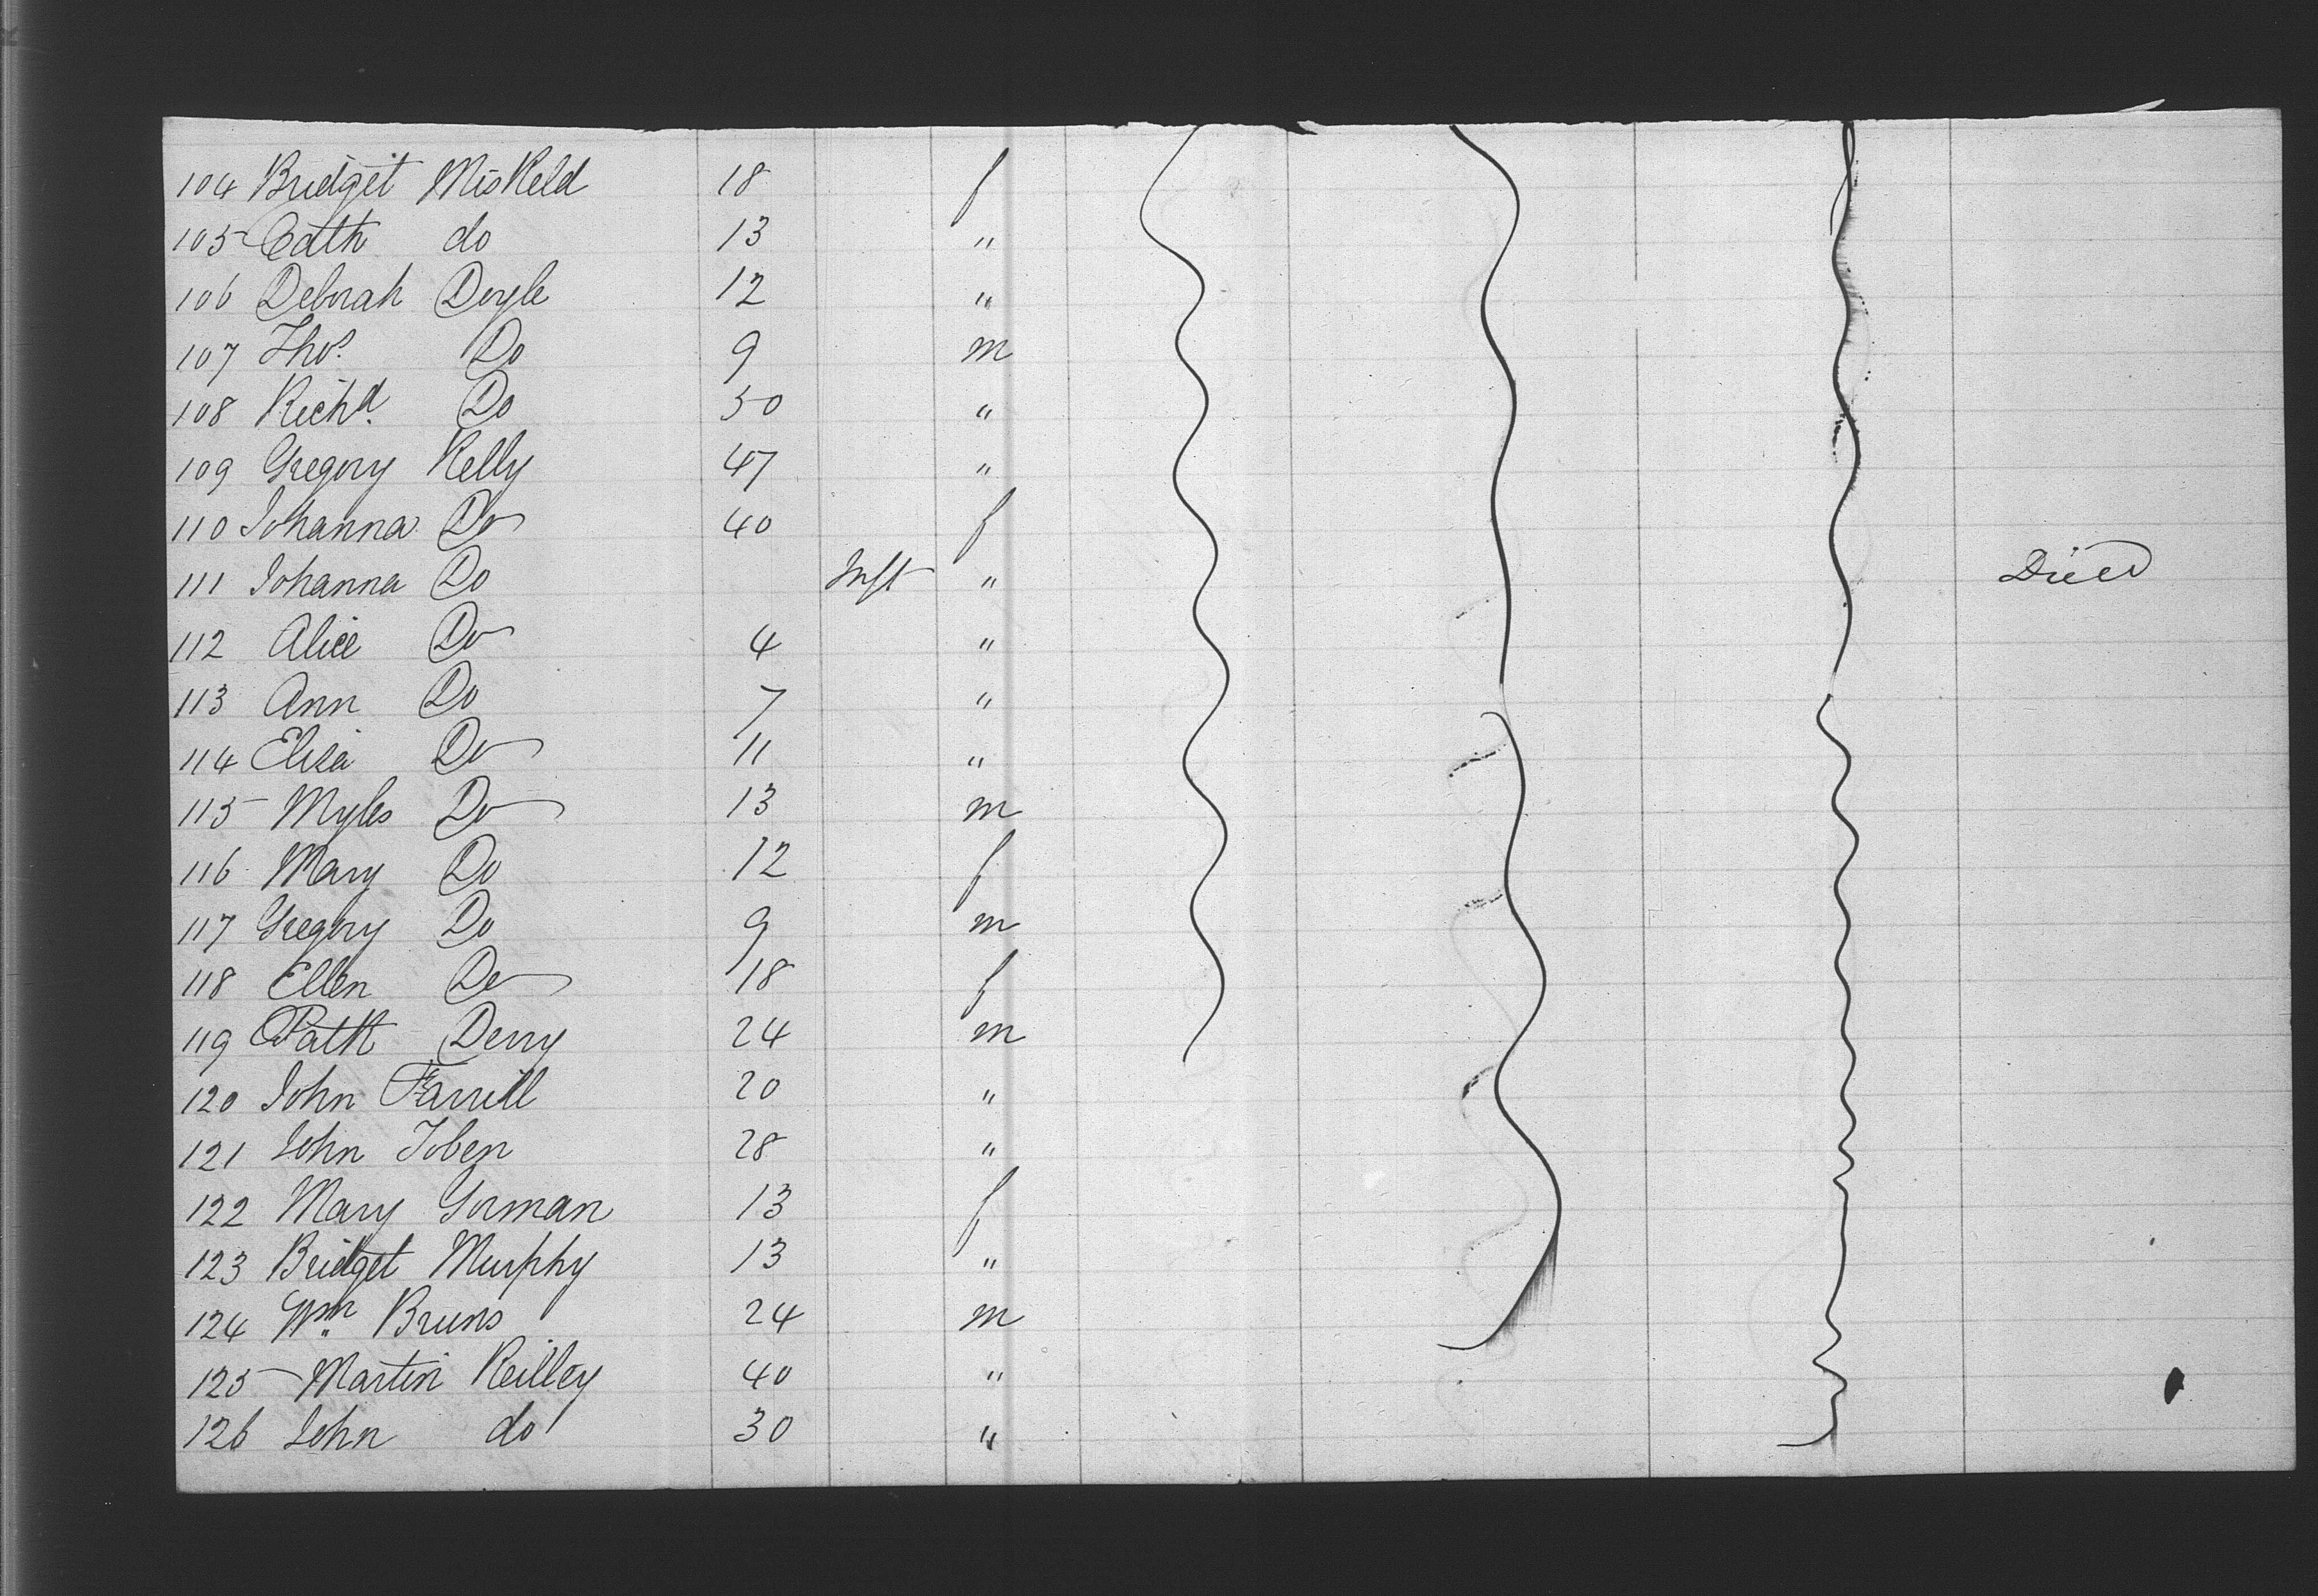 104 Bridget MisKeld 18 f
105 Cath do 13 "
106 Deborah Doyle 12 "
107 Thos. Do 9 m
108 Richd. Do 50 "
109 Gregory Kelly 47 "
110 Johanna Do 40 f
111 Johanna Do Inft " Died
112 Alice Do 4 "
113 Ann Do 7 "
114 Eliza Do 11 "
115 Myles Do 13 m
116 Mary Do 12 f
117 Gregory Do 9 m
118 Ellen Do 18 f
119 Patk Derry 24 m
120 John Farrill 20 "
121 John Toben 28 "
122 Mary Gorman 13 f
123 Bridget Murphy 13 "
124 Wm. Bruns 24 m
125 Martin Reilley 40 "
126 John do 30 "